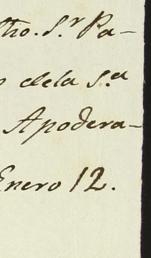 tho. S.r Pa-
dela S.a
Apodera-
Enero 12.